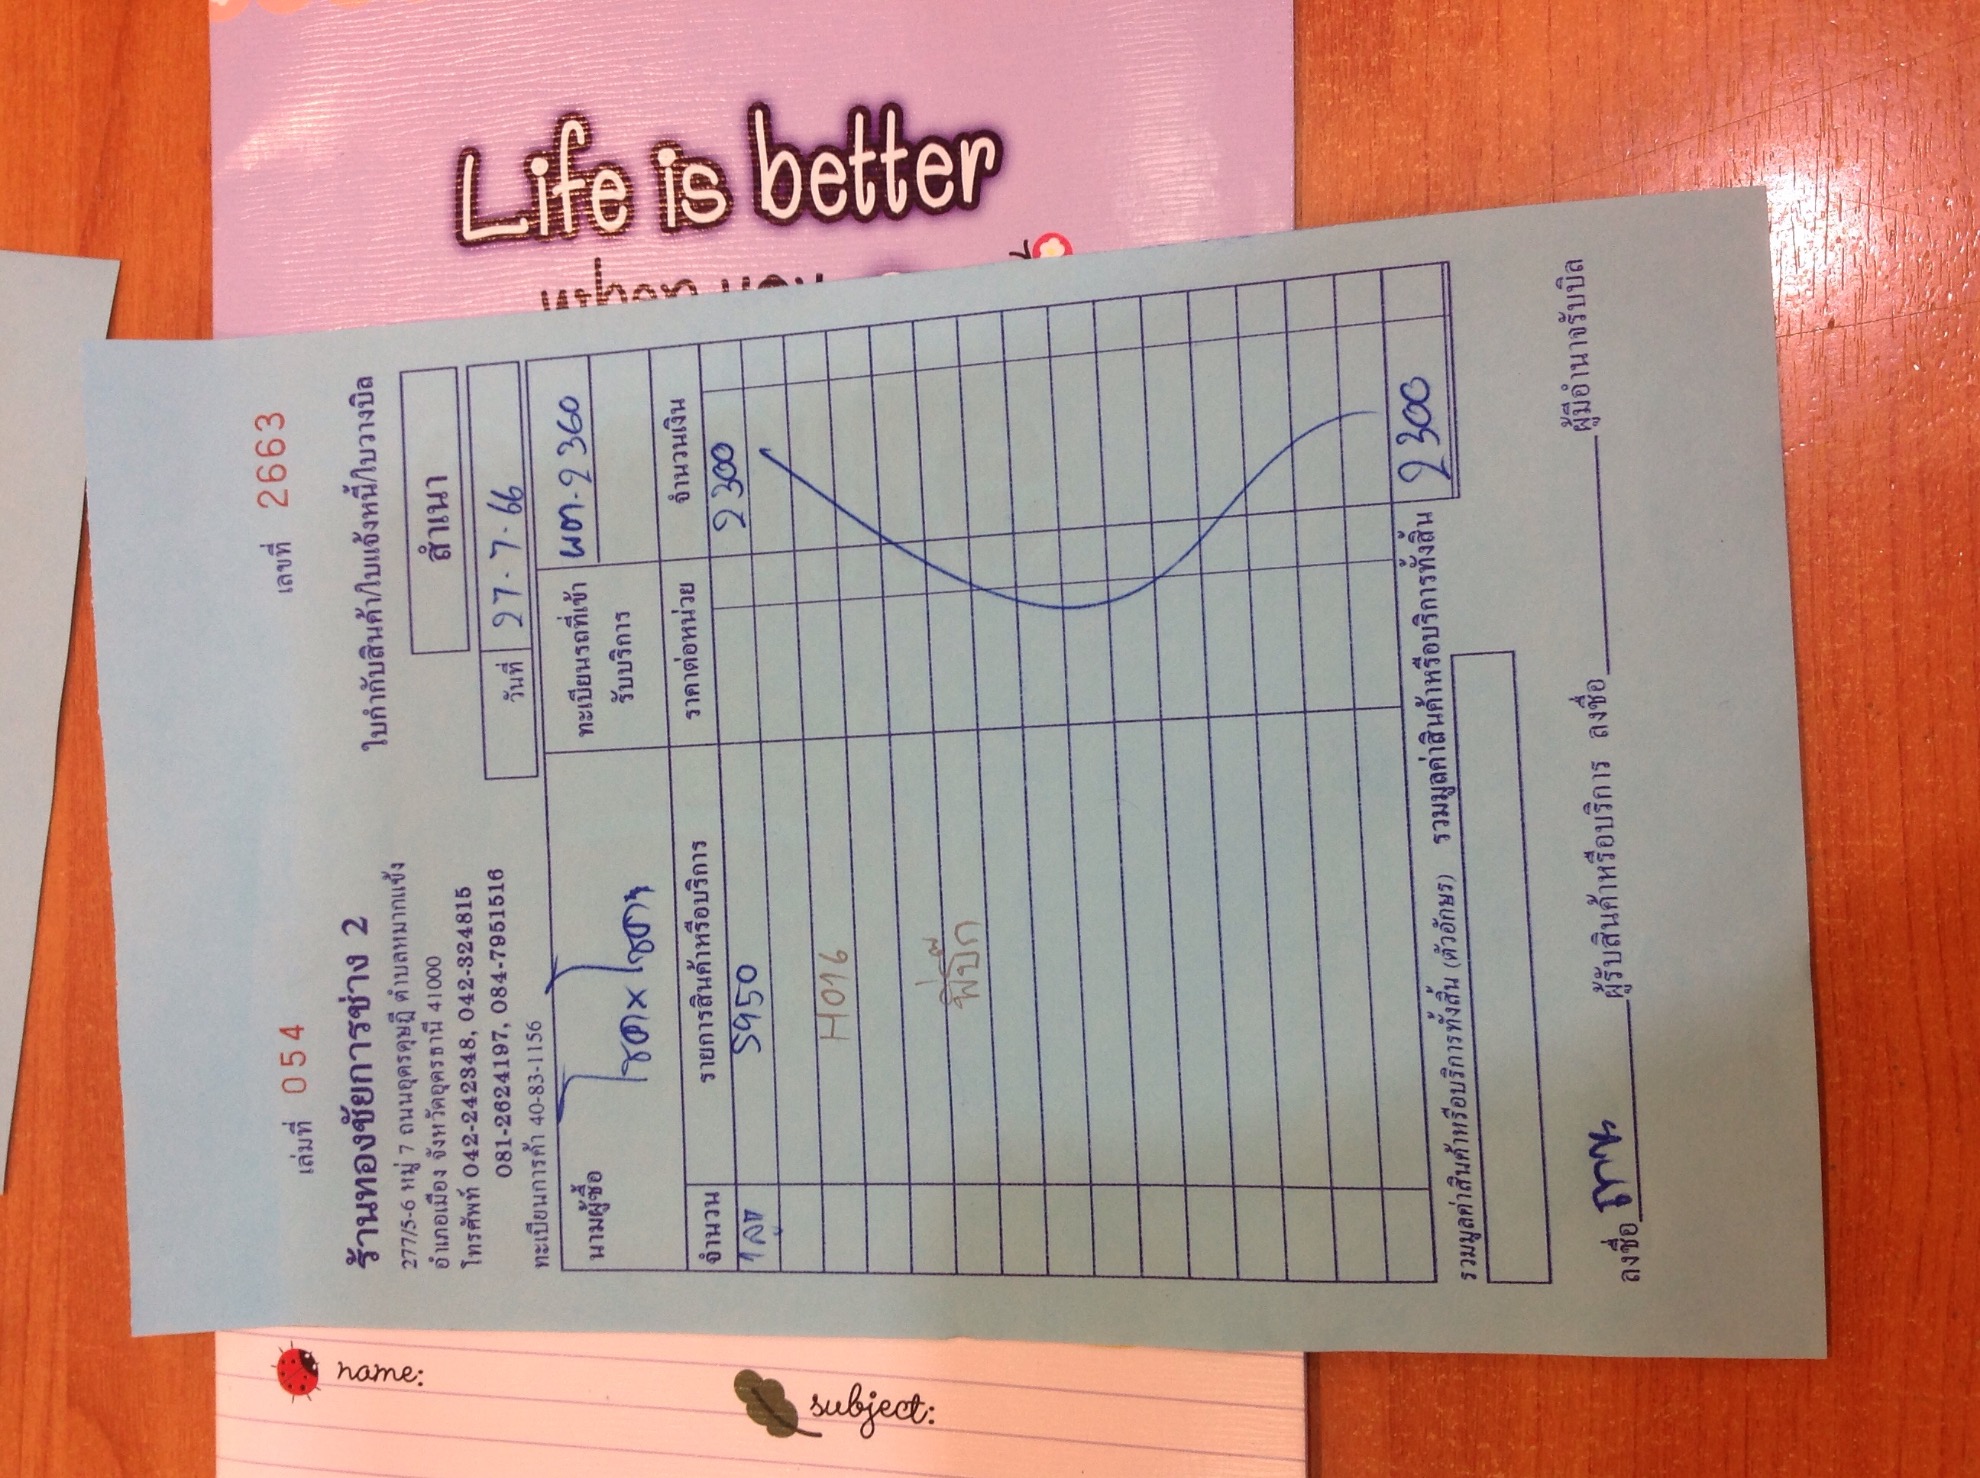 Life is better
when you
เล่มที่ 054
เลขที่ 2663
ร้านทองชัยการช่าง 2
ใบกำกับสินค้า/ใบแจ้งหนี้/ใบวางบิล
277/5-6 หมู่ 7 ถนนอุดรดุษฎี ตำบลหมากแข้ง
อำเภอเมือง จังหวัดอุดรธานี 41000
โทรศัพท์ 042-242348, 042-324815
081-2624197, 084-7951516
ทะเบียนการค้า 40-83-1156
สำเนา
วันที่ 27.7.66
นามผู้ซื้อ
ทะเบียนรถที่เข้า
รับบริการ
ผต.2360
จำนวน รายการสินค้าหรือบริการ ราคาต่อหน่วย จำนวนเงิน
1 ลูก S950 2300
H016
พี่บิ๊ก
รวมมูลค่าสินค้าหรือบริการทั้งสิ้น (ตัวอักษร) รวมมูลค่าสินค้าหรือบริการทั้งสิ้น 2300
ลงชื่อ ผู้รับสินค้าหรือบริการ ลงชื่อ ผู้มีอำนาจรับบิล
name:
subject: